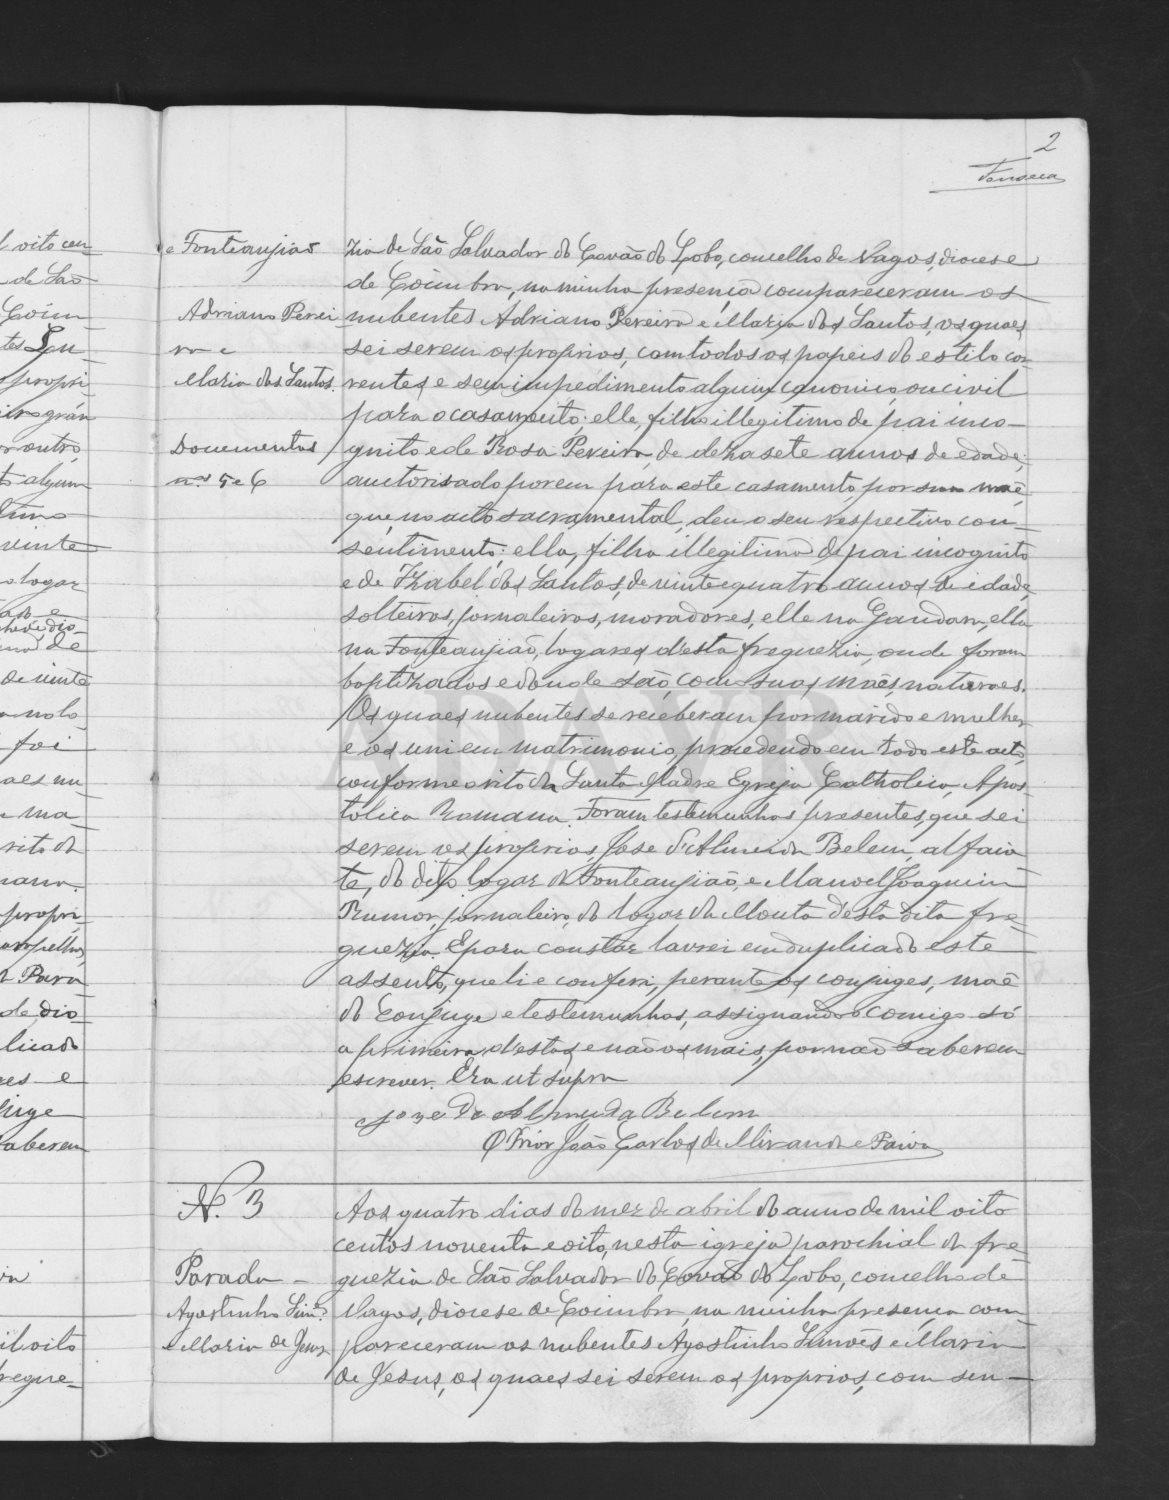 2
Fonseca
e Fonteanjião
Adriano Perei-
ra e
Maria dos Santos
Documentos
nos 5 e 6
zia de São Salvador do Covão do Lobo, concelho de Vagos, diocese
de Coimbra, na minha presença compareceram os
nubentes Adriano Pereira e Maria dos Santos, os quaes
sei serem os proprios, com todos os papeis do estilo cor-
rentes e sem impedimento algum canonico ou civil
para o casamento; elle, filho illegitimo de pai inco-
gnito e de Rosa Pereira, de dezasete annos de edade,
auctorisado porem para este casamento por sua mãe,
que, no acto sacramental, deu o seu respectivo con-
sentimento; ella, filha illegitima de pai incognito
e de Izabel dos Santos, de vinte e quatro annos de idade,
solteiros, jornaleiros, moradores, elle na Gandara, ella
na Fonteanjião, logares d'esta freguezia, onde foram
baptizados e donde são, com suas mães, naturaes.
Os quaes nubentes se receberam por marido e mulher
e os uni em matrimonio, procedendo em todo este acto,
conforme o rito da Santa Madre Egreja Catholica, Apos-
tolica Romana. Foram testemunhas presentes, que sei
serem os proprios, Jose d'Almeida Belem, alfaia-
te, do dito logar de Fonteanjião, e Manoel Joaquim
Rumor, jornaleiro, do logar da Mouta d'esta dita fre-
guezia. E para constar lavrei em duplicado este
assento, que li e conferi, perante os conjuges, mãe
do conjuge e testemunhas, assignando comigo só
a primeira d'estas e não os mais, por não saberem
escrever. Era ut supra
Joze de Almeida Belem
O Prior João Carlos de Miranda e Paiva
N. 3
Parada -
Agostinho Simes
e Maria de Jesus
Aos quatro dias do mez de abril do anno de mil oito
centos noventa e oito, nesta igreja parochial da fre-
guezia de São Salvador do Covão do Lobo, concelho de
Vagos, diocese de Coimbra, na minha presença com-
pareceram os nubentes Agostinho Simões e Maria
de Jesus, os quaes sei serem os proprios, com seu-
ADAVR